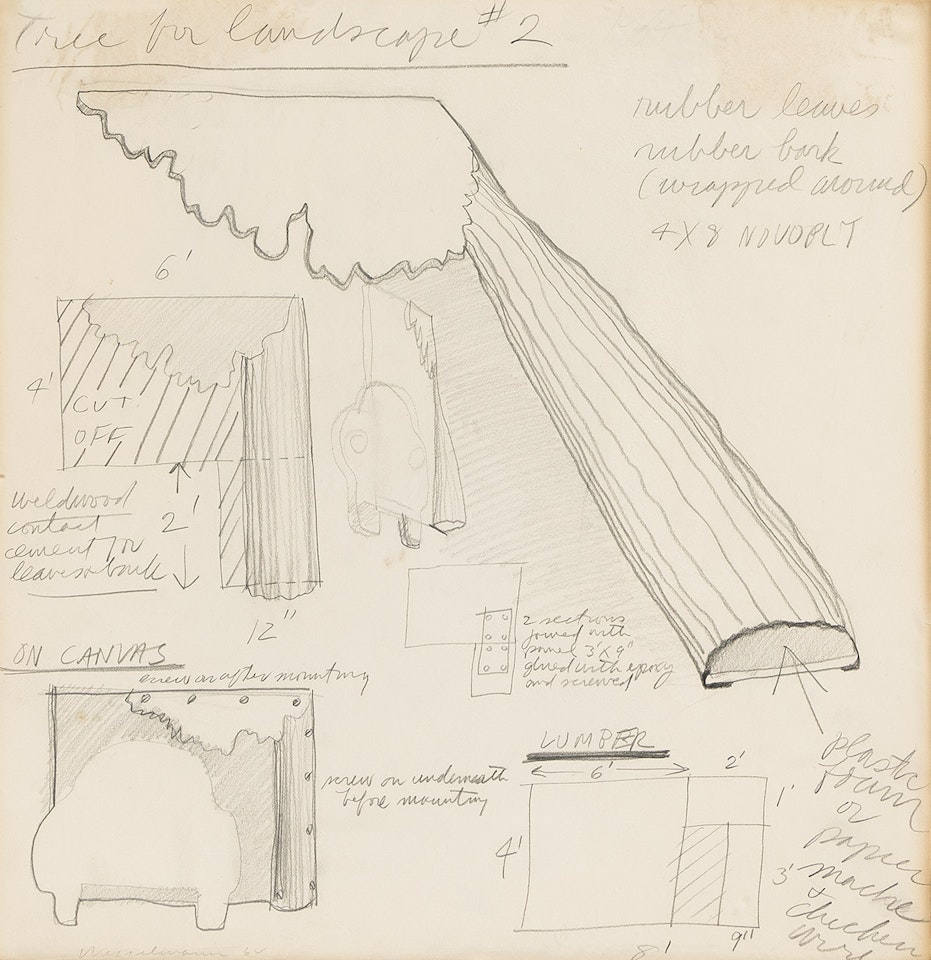 Tree for landscape #2
rubber leaves
rubber bark
(wrapped around)
4X8 NOVOPLT
6'
4'
CUT
OFF
weldwood
contact
cement for
leaves + bark
2'
12"
2 sections
joined with
panel 3'X9"
glued with epoxy
and screwed
ON CANVAS
screw on after mounting
screw on underneath
before mounting
LUMBER
6'
2'
4'
1'
3'
8'
9"
plastic
foam
or
papier
mache
+
chicken
wire
Wesselmann 64